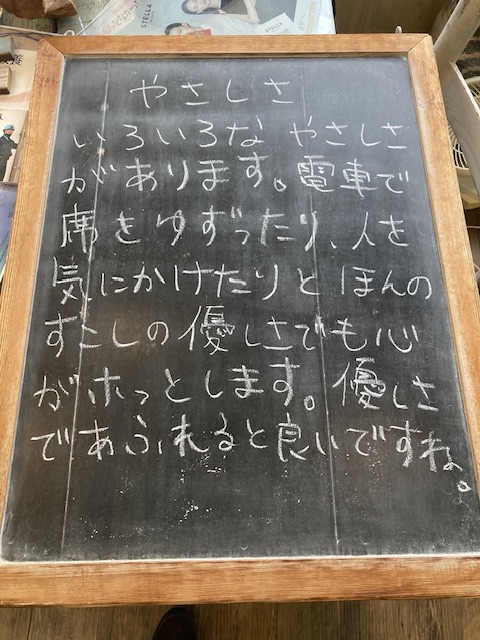 STELLA
STELLA
やさしさ
いろいろな やさしさ
があります。電車で
席をゆずったり、人を
気にかけたりと ほんの
すこしの優しさでも心
がホっとします。優しさ
であふれると良いですね。